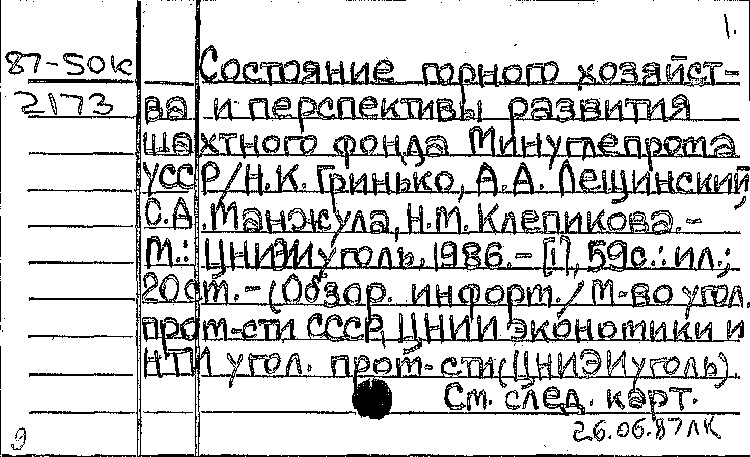 1.
87-50к Состояние горного хозяйст-
2173 ва и перспективы развития
шахтного фонда Минуглепрома
УССР/Н.К. Гринько, А.А. Лещинский,
С.А. Манжула, Н.М. Клепикова.-
М.: ЦНИЭИуголь, 1986.- [1], 59с.: ил.;
20см.- (Обзор. информ./М-во угол.
пром-сти СССР, ЦНИИ экономики и
НТИ угол. пром-сти (ЦНИЭИуголь).
См. след. карт.
9 26.06.87ЛК